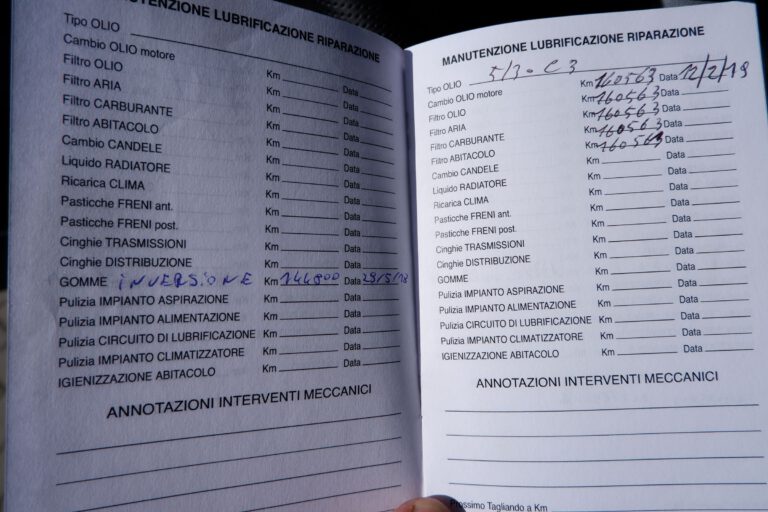 MANUTENZIONE LUBRIFICAZIONE RIPARAZIONE
Tipo OLIO
Cambio OLIO motore Km Data
Filtro OLIO Km Data
Filtro ARIA Km Data
Filtro CARBURANTE Km Data
Filtro ABITACOLO Km Data
Cambio CANDELE Km Data
Liquido RADIATORE Km Data
Ricarica CLIMA Km Data
Pasticche FRENI ant. Km Data
Pasticche FRENI post. Km Data
Cinghie TRASMISSIONI Km Data
Cinghie DISTRIBUZIONE Km Data
GOMME INVERSIONE Km 144800 Data 29/5/18
Pulizia IMPIANTO ASPIRAZIONE Km Data
Pulizia IMPIANTO ALIMENTAZIONE Km Data
Pulizia CIRCUITO DI LUBRIFICAZIONE Km Data
Pulizia IMPIANTO CLIMATIZZATORE Km Data
IGIENIZZAZIONE ABITACOLO Km Data
ANNOTAZIONI INTERVENTI MECCANICI
MANUTENZIONE LUBRIFICAZIONE RIPARAZIONE
Tipo OLIO 5/30 C3
Cambio OLIO motore Km 160563 Data 12/2/19
Filtro OLIO Km 160563 Data
Filtro ARIA Km 160563 Data
Filtro CARBURANTE Km 160563 Data
Filtro ABITACOLO Km 160563 Data
Cambio CANDELE Km Data
Liquido RADIATORE Km Data
Ricarica CLIMA Km Data
Pasticche FRENI ant. Km Data
Pasticche FRENI post. Km Data
Cinghie TRASMISSIONI Km Data
Cinghie DISTRIBUZIONE Km Data
GOMME Km Data
Pulizia IMPIANTO ASPIRAZIONE Km Data
Pulizia IMPIANTO ALIMENTAZIONE Km Data
Pulizia CIRCUITO DI LUBRIFICAZIONE Km Data
Pulizia IMPIANTO CLIMATIZZATORE Km Data
IGIENIZZAZIONE ABITACOLO Km Data
ANNOTAZIONI INTERVENTI MECCANICI
Prossimo Tagliando a Km